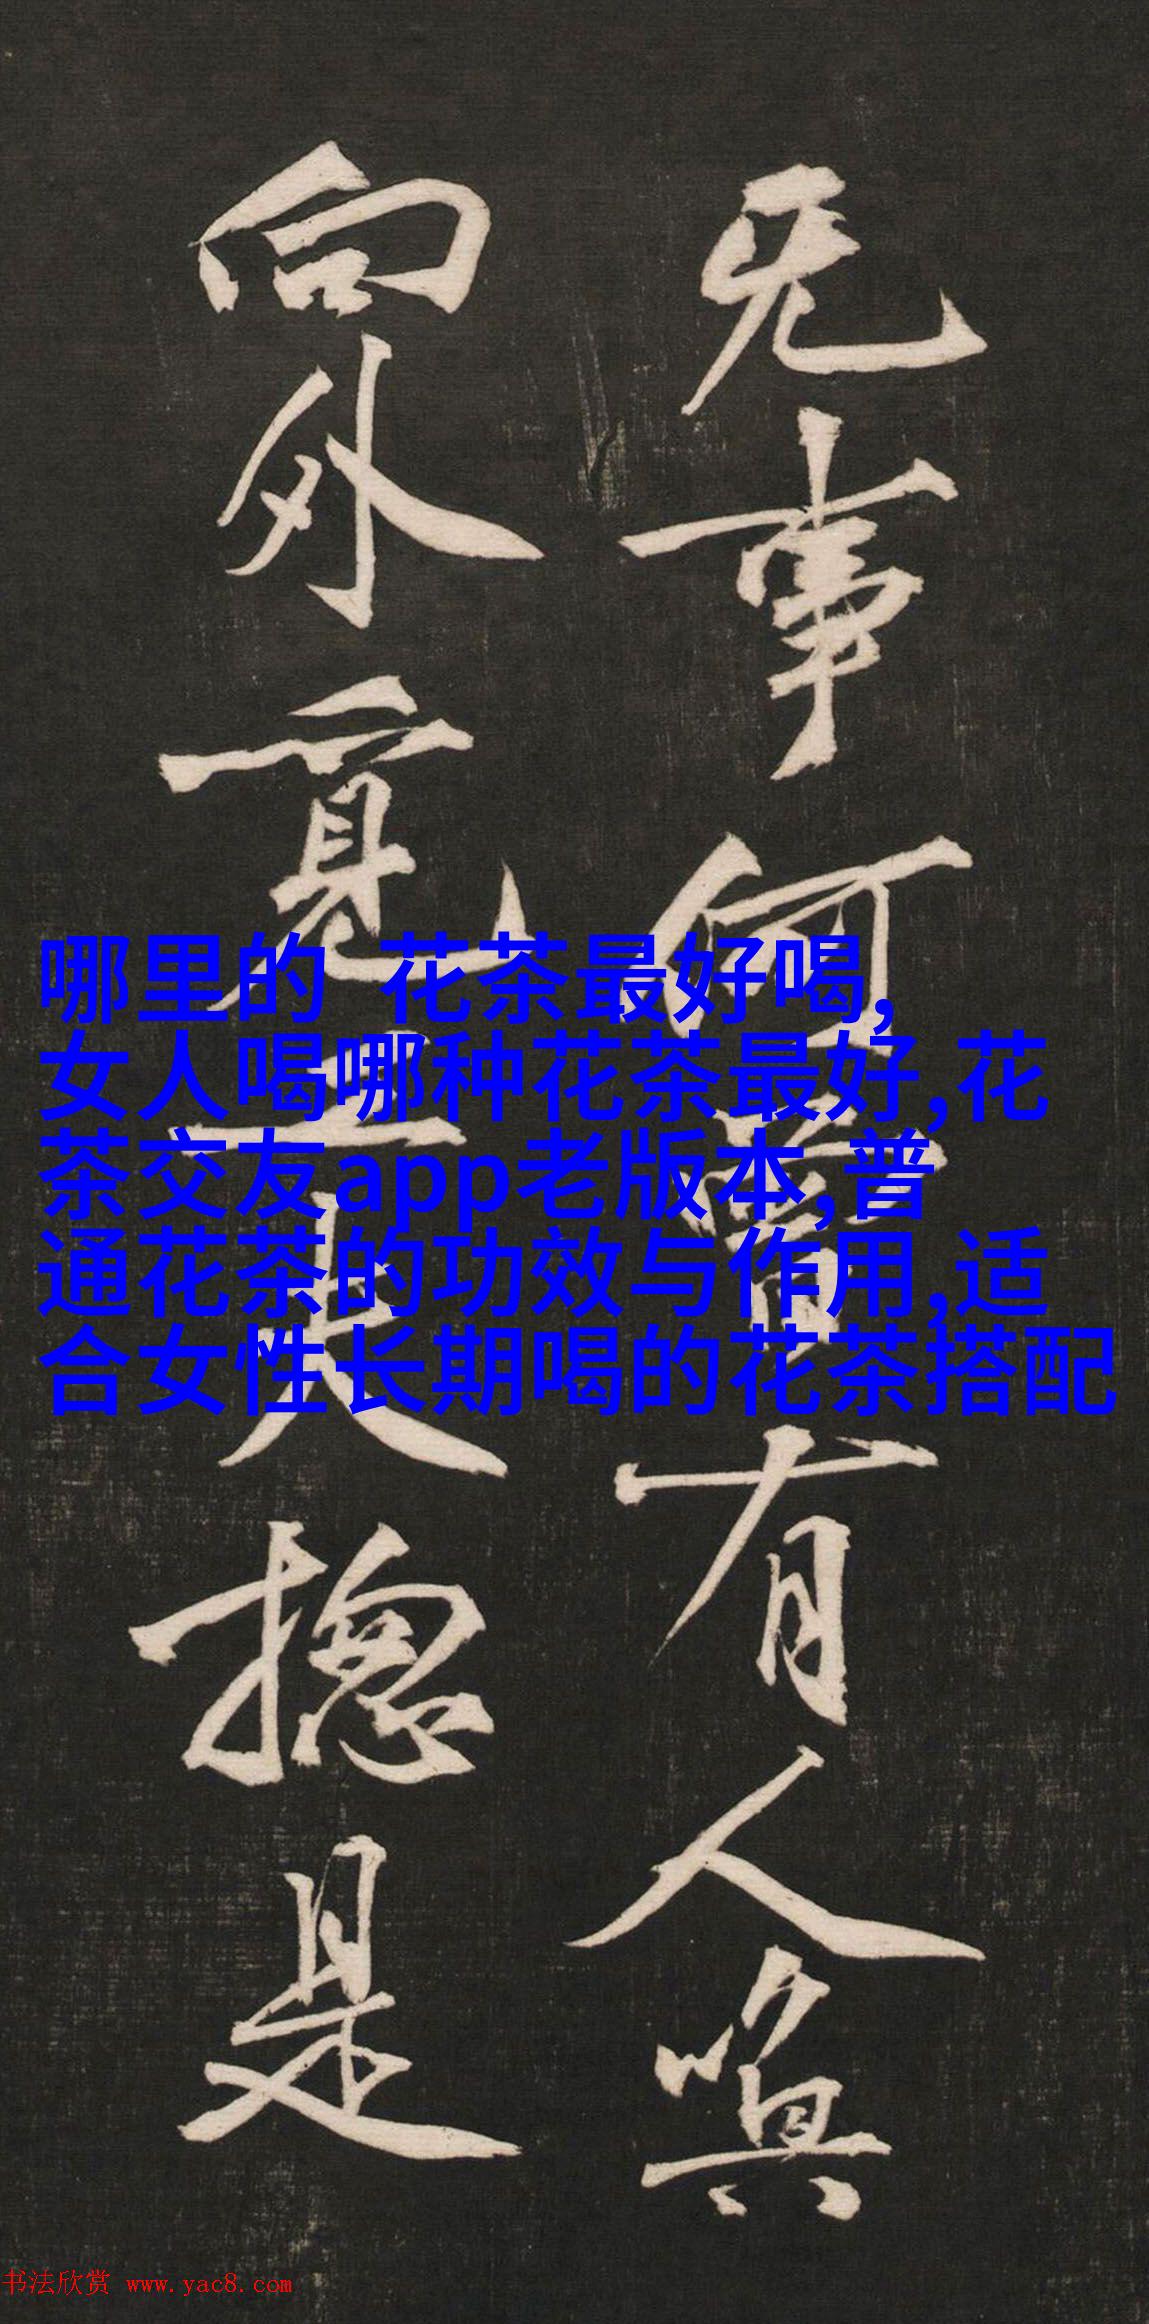 无事何有人
向外工夫揔是
哪里的 花茶最好喝,
女人喝哪种花茶最好,花
茶交友app老版本,普
通花茶的功效与作用,适
合女性长期喝的花茶搭配
书法欣赏 www.yac8.com